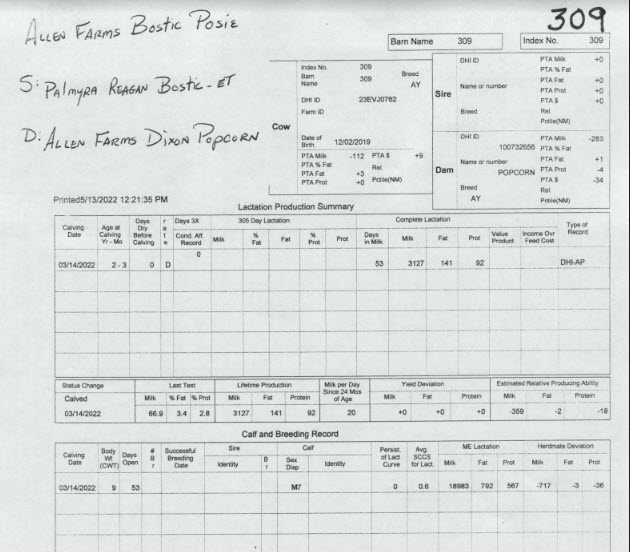 309
ALLEN FARMS BOSTIC POSIE
S: PALMYRA REAGAN BOSTIC-ET
D: ALLEN FARMS DIXON POPCORN
Barn Name 309
Index No. 309
Cow
Index No. 309
Barn Name 309 Breed AY
DHI ID 23EVJ0762
Farm ID
Date of Birth 12/02/2019
PTA Milk -112 PTA $ +9
PTA % Fat Rel
PTA Fat +3
PTA Prot +0 Pctile(NM)
Sire
DHI ID PTA Milk +0
PTA % Fat
Name or number PTA Fat +0
PTA Prot +0
PTA $ +0
Breed Rel
Pctile(NM)
Dam
DHI ID 100732656 PTA Milk -283
PTA % Fat
Name or number PTA Fat +1
POPCORN PTA Prot -4
PTA $ -34
Breed Rel
AY Pctile(NM)
Printed5/13/2022 12:21:35 PM
Lactation Production Summary
Calving Date Age at Calving Yr - Mo Days Dry Before Calving r a t e Days 3X Cond. Aff. Record 305 Day Lactation Milk % Fat Fat % Prot Prot Complete Lactation Days in Milk Milk Fat Prot Value Product Income Ovr Feed Cost Type of Record
0
03/14/2022 2 - 3 0 D 53 3127 141 92 DHI-AP
Status Change Last Test Lifetime Production Milk per Day Since 24 Mos of Age Yield Deviation Estimated Relative Producing Ability
Calved Milk % Fat % Prot Milk Fat Protein Milk Fat Protein Milk Fat Protein
03/14/2022 66.9 3.4 2.8 3127 141 92 20 +0 +0 +0 -359 -2 -18
Calf and Breeding Record
Calving Date Body Wt (CWT) Days Open # B r Successful Breeding Date Sire Identity B r Calf Sex Disp Identity Persist. of Lact Curve Avg SCCS for Lact. ME Lactation Milk Fat Prot Herdmate Deviation Milk Fat Prot
03/14/2022 9 53 M7 0 0.6 18983 792 567 -717 -3 -36